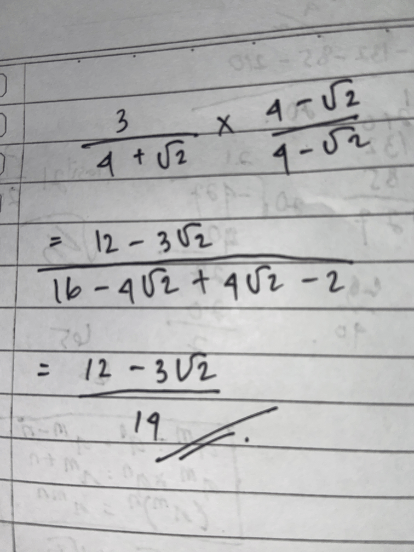 3/(4 + √2) × (4 - √2)/(4 - √2)
= (12 - 3√2)/(16 - 4√2 + 4√2 - 2)
= (12 - 3√2)/14